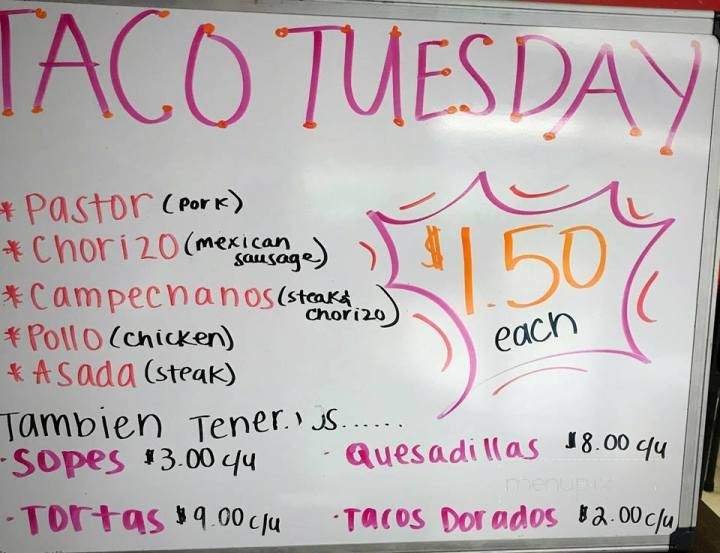 TACO TUESDAY
* Pastor (Pork)
* Chorizo (mexican sausage)
* Campechanos (steak & chorizo)
* Pollo (chicken)
* Asada (steak)
$1.50
each
Tambien
· Sopes $3.00 c/u
· Quesadillas $8.00 c/u
· Tortas $9.00 c/u
· Tacos Dorados $2.00 c/u